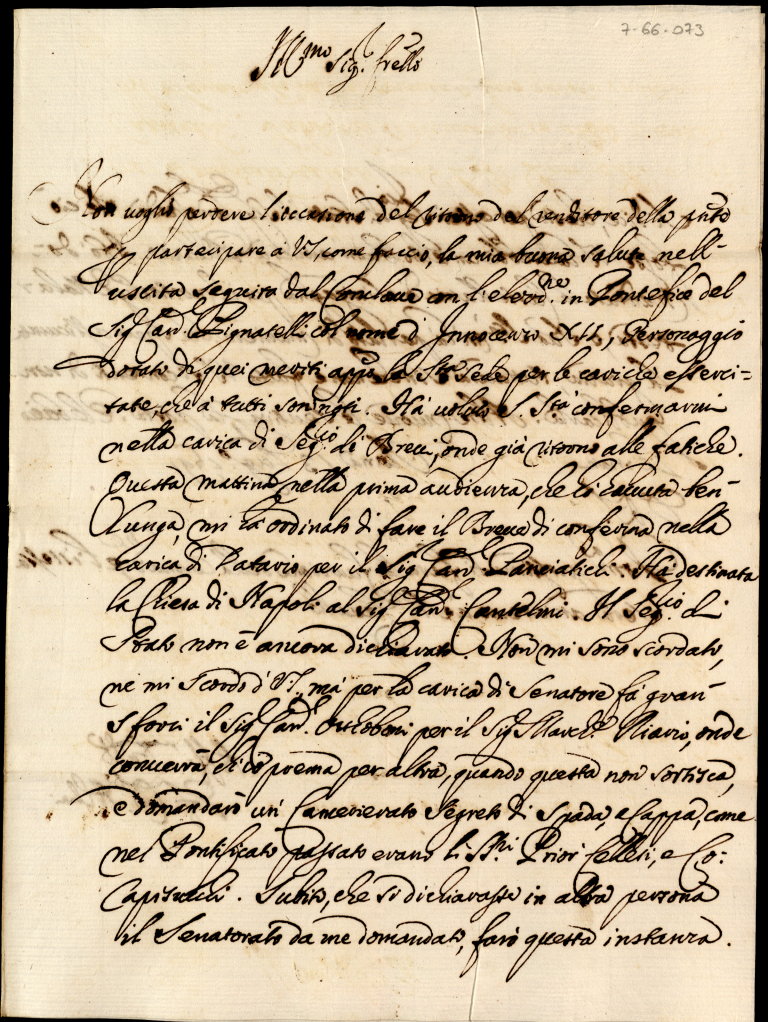 7-66-073
Ill.mo Sig.r frello
Non voglio perdere l'occasione del ritorno del venditore della pnte
p partecipare à VS, come faccio, la mia buona salute nell'
uscita seguita dal Conclave con l'elez.ne in Pontefice del
Sig.r Card. Pignatelli col nome d'Innocenzo XII, Personaggio
dotato di quei meriti appo la Sta Sede per le cariche esserci=
tate, che à tutti son noti. Hà voluto S. Stà confermarmi
nella carica di Seg.rio di Brevi, onde già ritorno alle fatiche.
Questa mattina nella prima audienza, che hò havuta ben
lunga, mi hà ordinato di fare il Breve di conferma nella
carica di Datario per il Sig.r Card. Panciatichi. Hà destinata
la Chiesa di Napoli al Sig.r Card. Cantelmi. Il Seg.rio di
Stato non è ancora dichiarato. Non mi sono scordato,
ne mi scordo di VS, mà per la carica di Senatore fà gran
sforzi il Sig.r Card.l Ottoboni per il Sig.r March.e Riario, onde
converrà, ch'io prema per altra, quando questa non sortisca,
e domandarò un Camerierato Segreto di Spada, e Cappa, come
nel Pontificato passato erano li SS.ri Prior Cellesi, e Co:
Capizucchi. Subito, che si dichiarasse in altra persona
il Senatorato da me domandato, farò questa instanza.